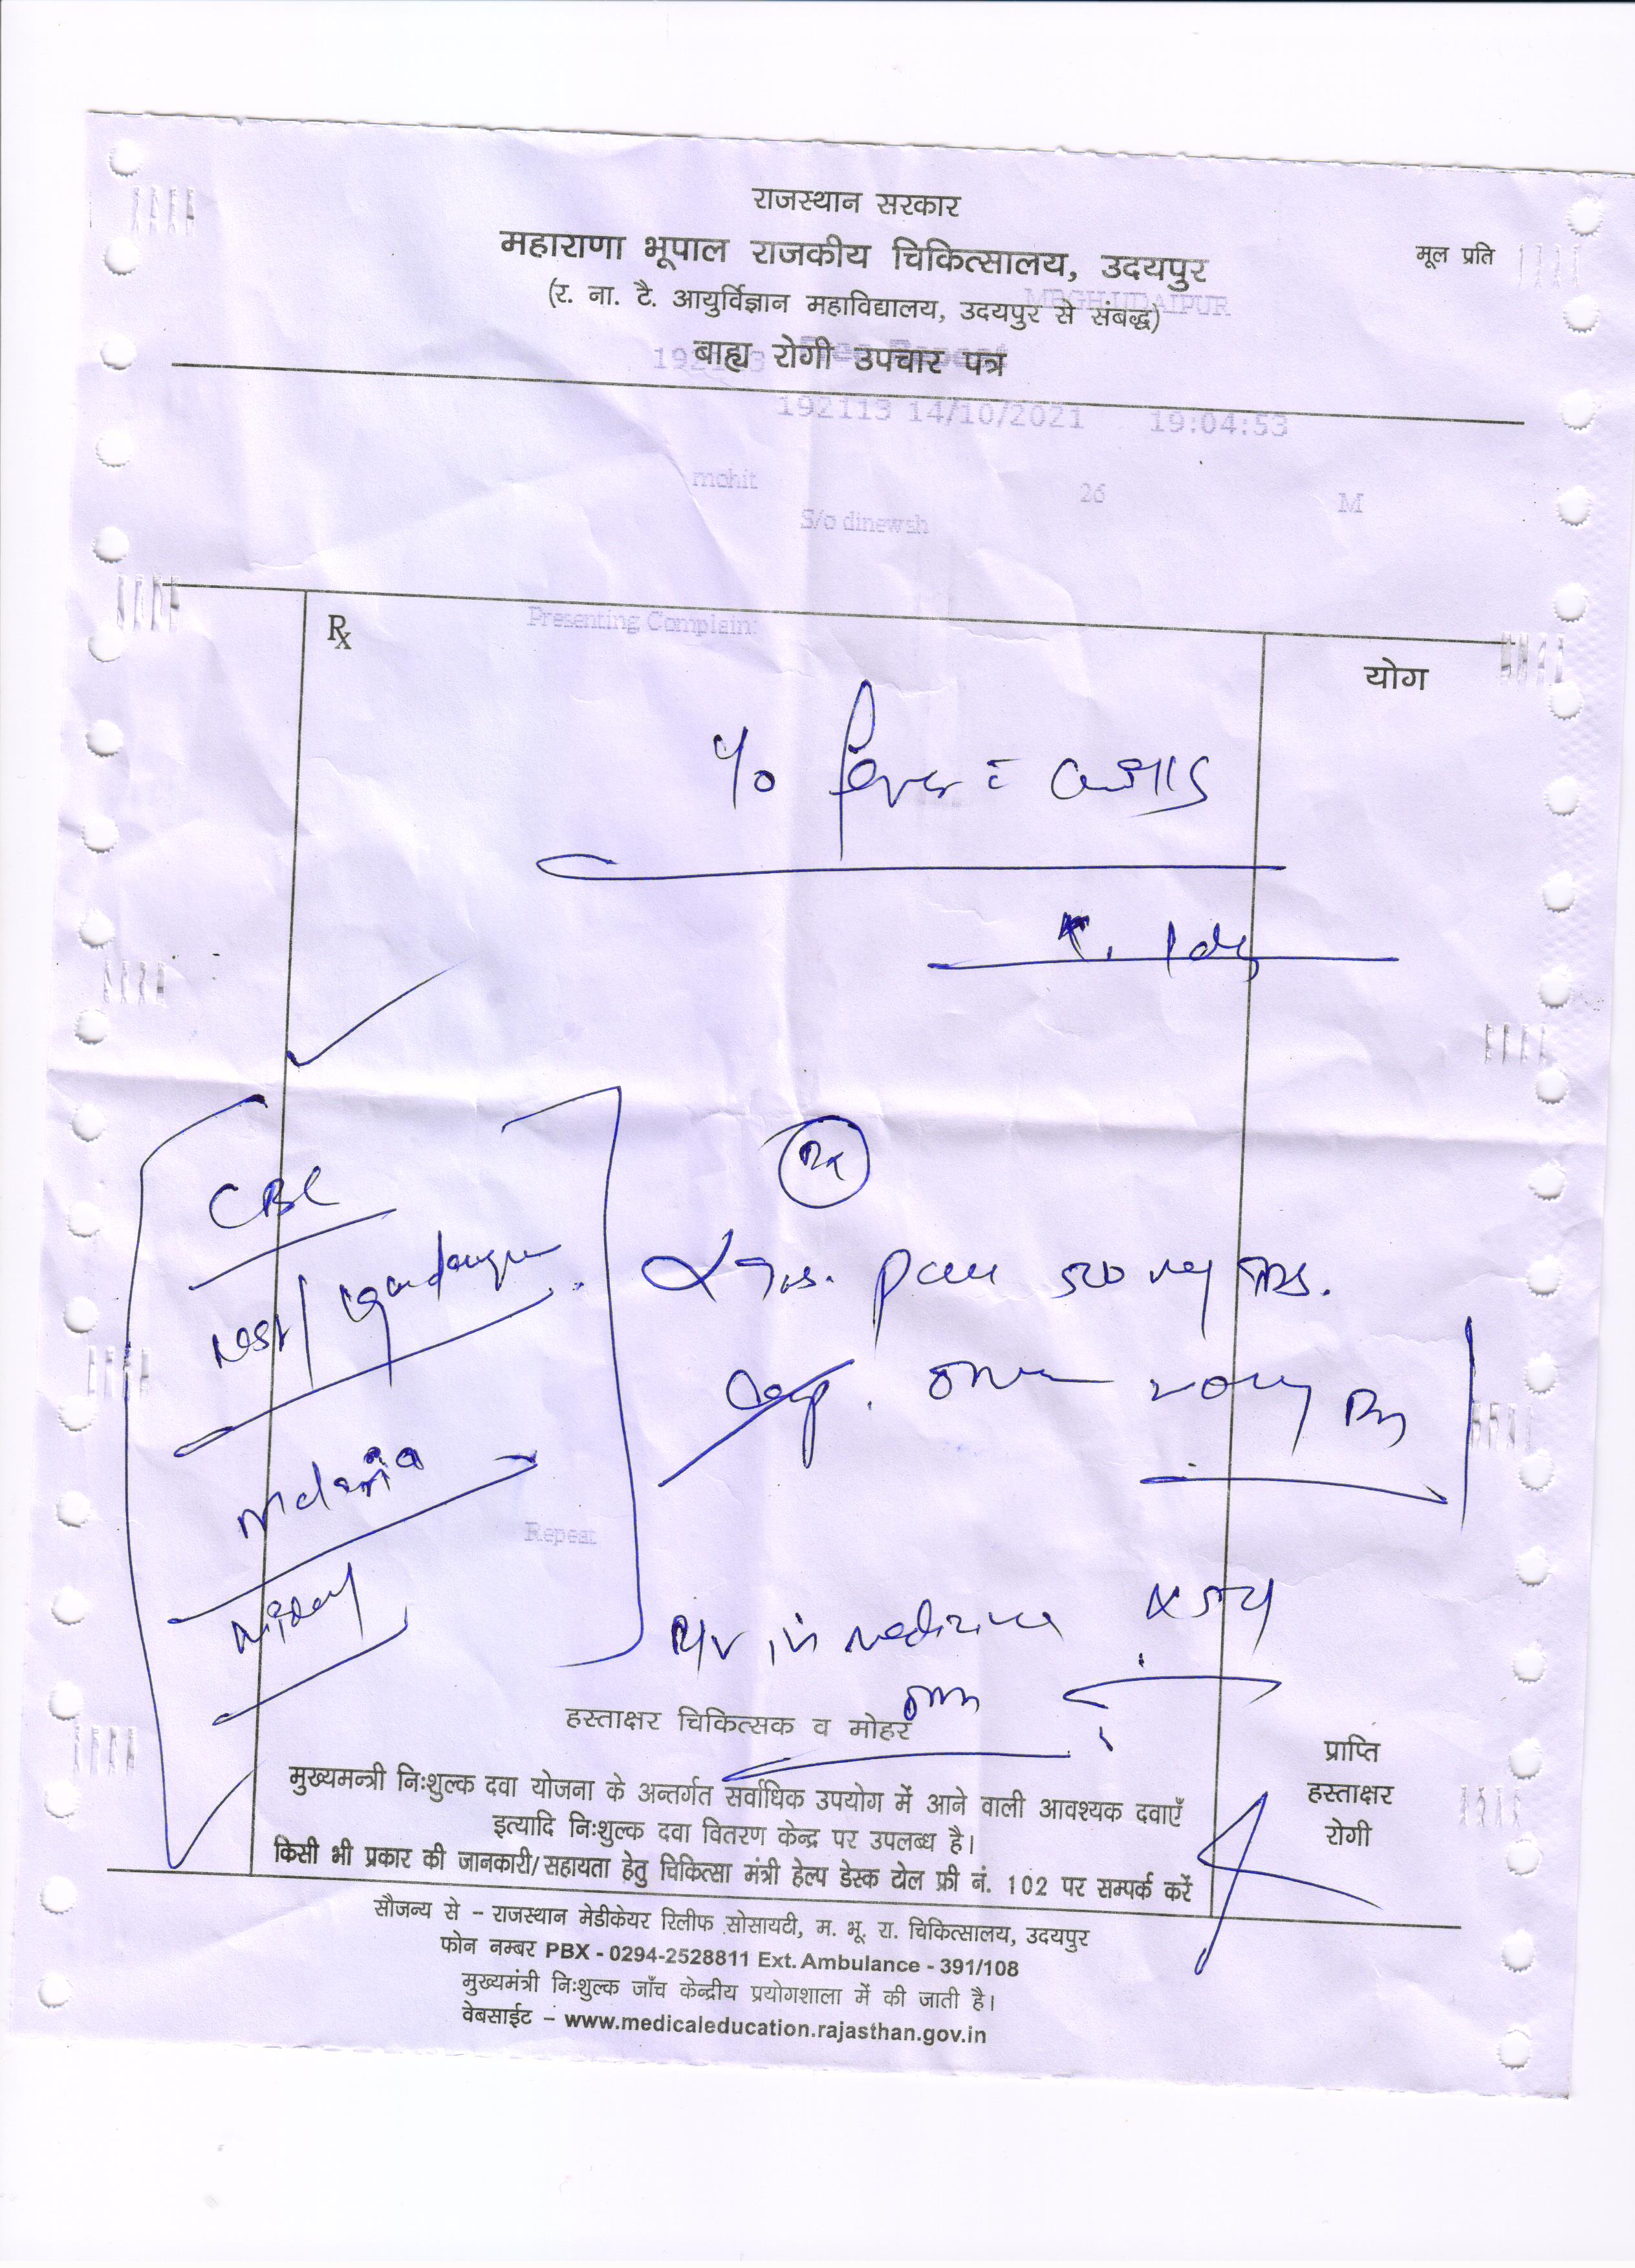 राजस्थान सरकार
महाराणा भूपाल राजकीय चिकित्सालय, उदयपुर
मूल प्रति
(र. ना. टै. आयुर्विज्ञान महाविद्यालय, उदयपुर से संबद्ध)
MBGH UDAIPUR
बाह्य रोगी उपचार पत्र
192113 14/10/2021 19:04:53
mohit 26 M
S/o dinewsh
Rx
Presenting Complain:
योग
c/o fever
1 day
Rx
CBC
500 mg TDS.
Cap. 20 mg
malaria
Repeat
in medicine
हस्ताक्षर चिकित्सक व मोहर
मुख्यमन्त्री निःशुल्क दवा योजना के अन्तर्गत सर्वाधिक उपयोग में आने वाली आवश्यक दवाएँ
इत्यादि निःशुल्क दवा वितरण केन्द्र पर उपलब्ध है।
किसी भी प्रकार की जानकारी/सहायता हेतु चिकित्सा मंत्री हेल्प डेस्क टोल फ्री नं. 102 पर सम्पर्क करें
प्राप्ति
हस्ताक्षर
रोगी
सौजन्य से - राजस्थान मेडीकेयर रिलीफ सोसायटी, म. भू. रा. चिकित्सालय, उदयपुर
फोन नम्बर PBX - 0294-2528811 Ext. Ambulance - 391/108
मुख्यमंत्री निःशुल्क जाँच केन्द्रीय प्रयोगशाला में की जाती है।
वेबसाईट - www.medicaleducation.rajasthan.gov.in